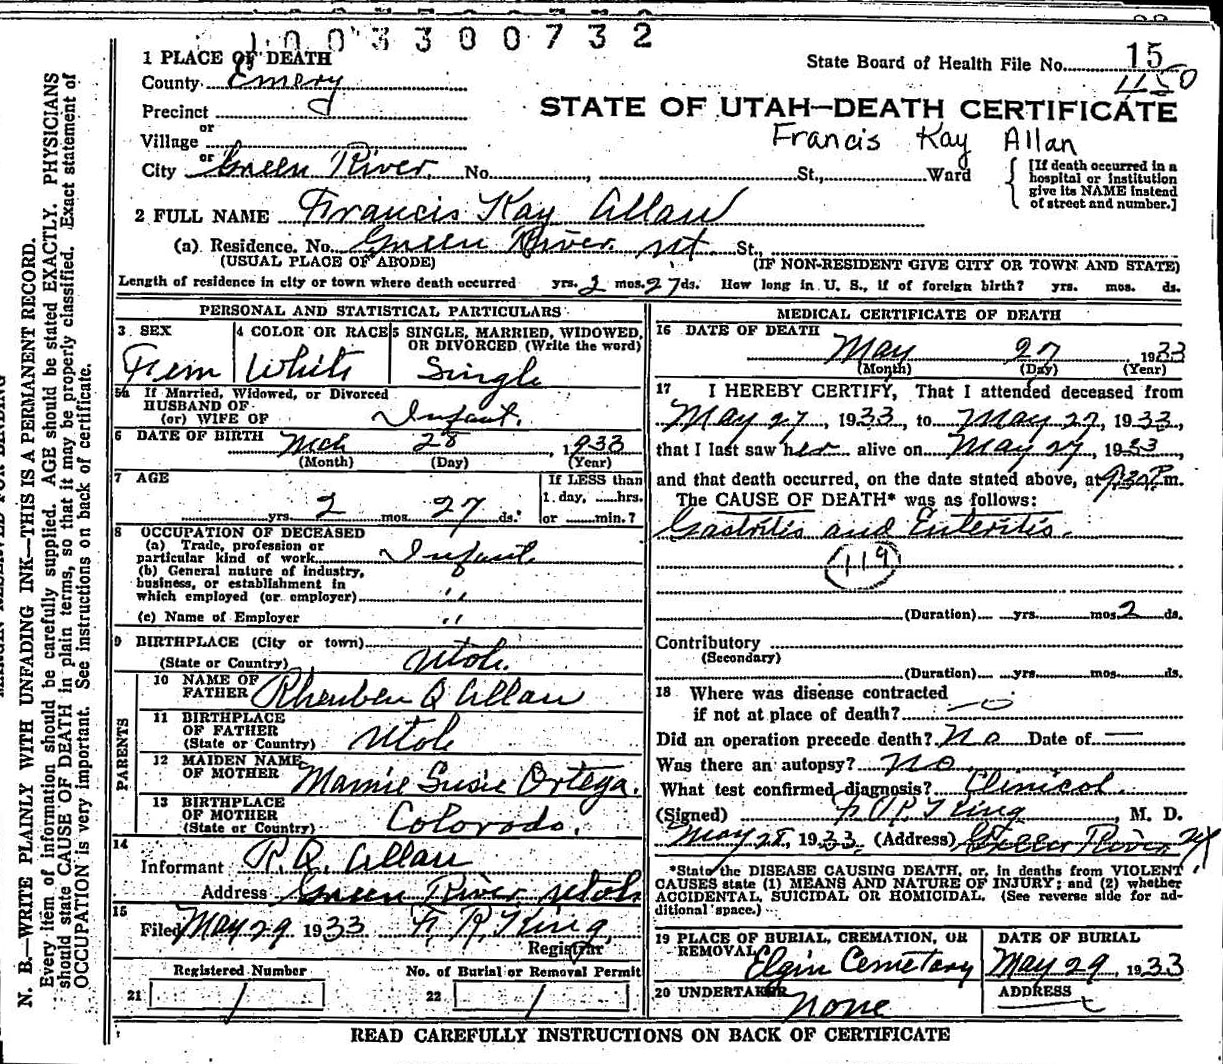 1003300732
1 PLACE OF DEATH
State Board of Health File No. 15
450
County Emery
STATE OF UTAH—DEATH CERTIFICATE
Precinct
Francis Kay Allan
or
Village
or
City Green River. No. , St., Ward
{ [If death occurred in a
hospital or institution
give its NAME instead
of street and number.]
2 FULL NAME Francis Kay Allan
(a) Residence. No. Green River Ut. St.,
(USUAL PLACE OF ABODE) (IF NON-RESIDENT GIVE CITY OR TOWN AND STATE)
Length of residence in city or town where death occurred yrs. 2 mos. 27 ds. How long in U. S., if of foreign birth? yrs. mos. ds.
PERSONAL AND STATISTICAL PARTICULARS
3 SEX
Fem
4 COLOR OR RACE
White
5 SINGLE, MARRIED, WIDOWED,
OR DIVORCED (Write the word)
Single
5a If Married, Widowed, or Divorced
HUSBAND OF
(or) WIFE OF Infant.
6 DATE OF BIRTH Mch 28, 1933
(Month) (Day) (Year)
7 AGE
yrs. 2 mos. 27 ds.
If LESS than
1 day, hrs.
or min.?
8 OCCUPATION OF DECEASED
(a) Trade, profession or
particular kind of work Infant
(b) General nature of industry,
business, or establishment in
which employed (or employer) "
(c) Name of Employer "
9 BIRTHPLACE (City or town)
(State or Country) Utah.
PARENTS
10 NAME OF
FATHER Rheuben Q Allan
11 BIRTHPLACE
OF FATHER
(State or Country) Utah
12 MAIDEN NAME
OF MOTHER Mamie Susie Ortega.
13 BIRTHPLACE
OF MOTHER
(State or Country) Colorado.
14
Informant R. Q. Allan
Address Green River Utah
15
Filed May 29 1933 F. R. King
Registrar
Registered Number
21
No. of Burial or Removal Permit
22
MEDICAL CERTIFICATE OF DEATH
16 DATE OF DEATH
May 27 1933
(Month) (Day) (Year)
17 I HEREBY CERTIFY, That I attended deceased from
May 27, 1933, to May 27, 1933,
that I last saw her alive on May 27, 1933,
and that death occurred, on the date stated above, at P.m.
The CAUSE OF DEATH* was as follows:
Gastritis and Enteritis.
119
(Duration) yrs. mos. 2 ds.
Contributory
(Secondary)
(Duration) yrs. mos. ds.
18 Where was disease contracted
if not at place of death? —o
Did an operation precede death? No Date of —
Was there an autopsy? No.
What test confirmed diagnosis? Clinical.
(Signed) King, M. D.
May 28, 1933. (Address) Green River Ut
*State the DISEASE CAUSING DEATH, or, in deaths from VIOLENT
CAUSES state (1) MEANS AND NATURE OF INJURY; and (2) whether
ACCIDENTAL, SUICIDAL OR HOMICIDAL. (See reverse side for ad-
ditional space.)
19 PLACE OF BURIAL, CREMATION, OR
REMOVAL Elgin Cemetary
DATE OF BURIAL
May 29, 1933
20 UNDERTAKER
None
ADDRESS
READ CAREFULLY INSTRUCTIONS ON BACK OF CERTIFICATE
N. B.—WRITE PLAINLY WITH UNFADING INK—THIS IS A PERMANENT RECORD.
Every item of information should be carefully supplied. AGE should be stated EXACTLY. PHYSICIANS
should state CAUSE OF DEATH in plain terms, so that it may be properly classified. Exact statement of
OCCUPATION is very important. See instructions on back of certificate.